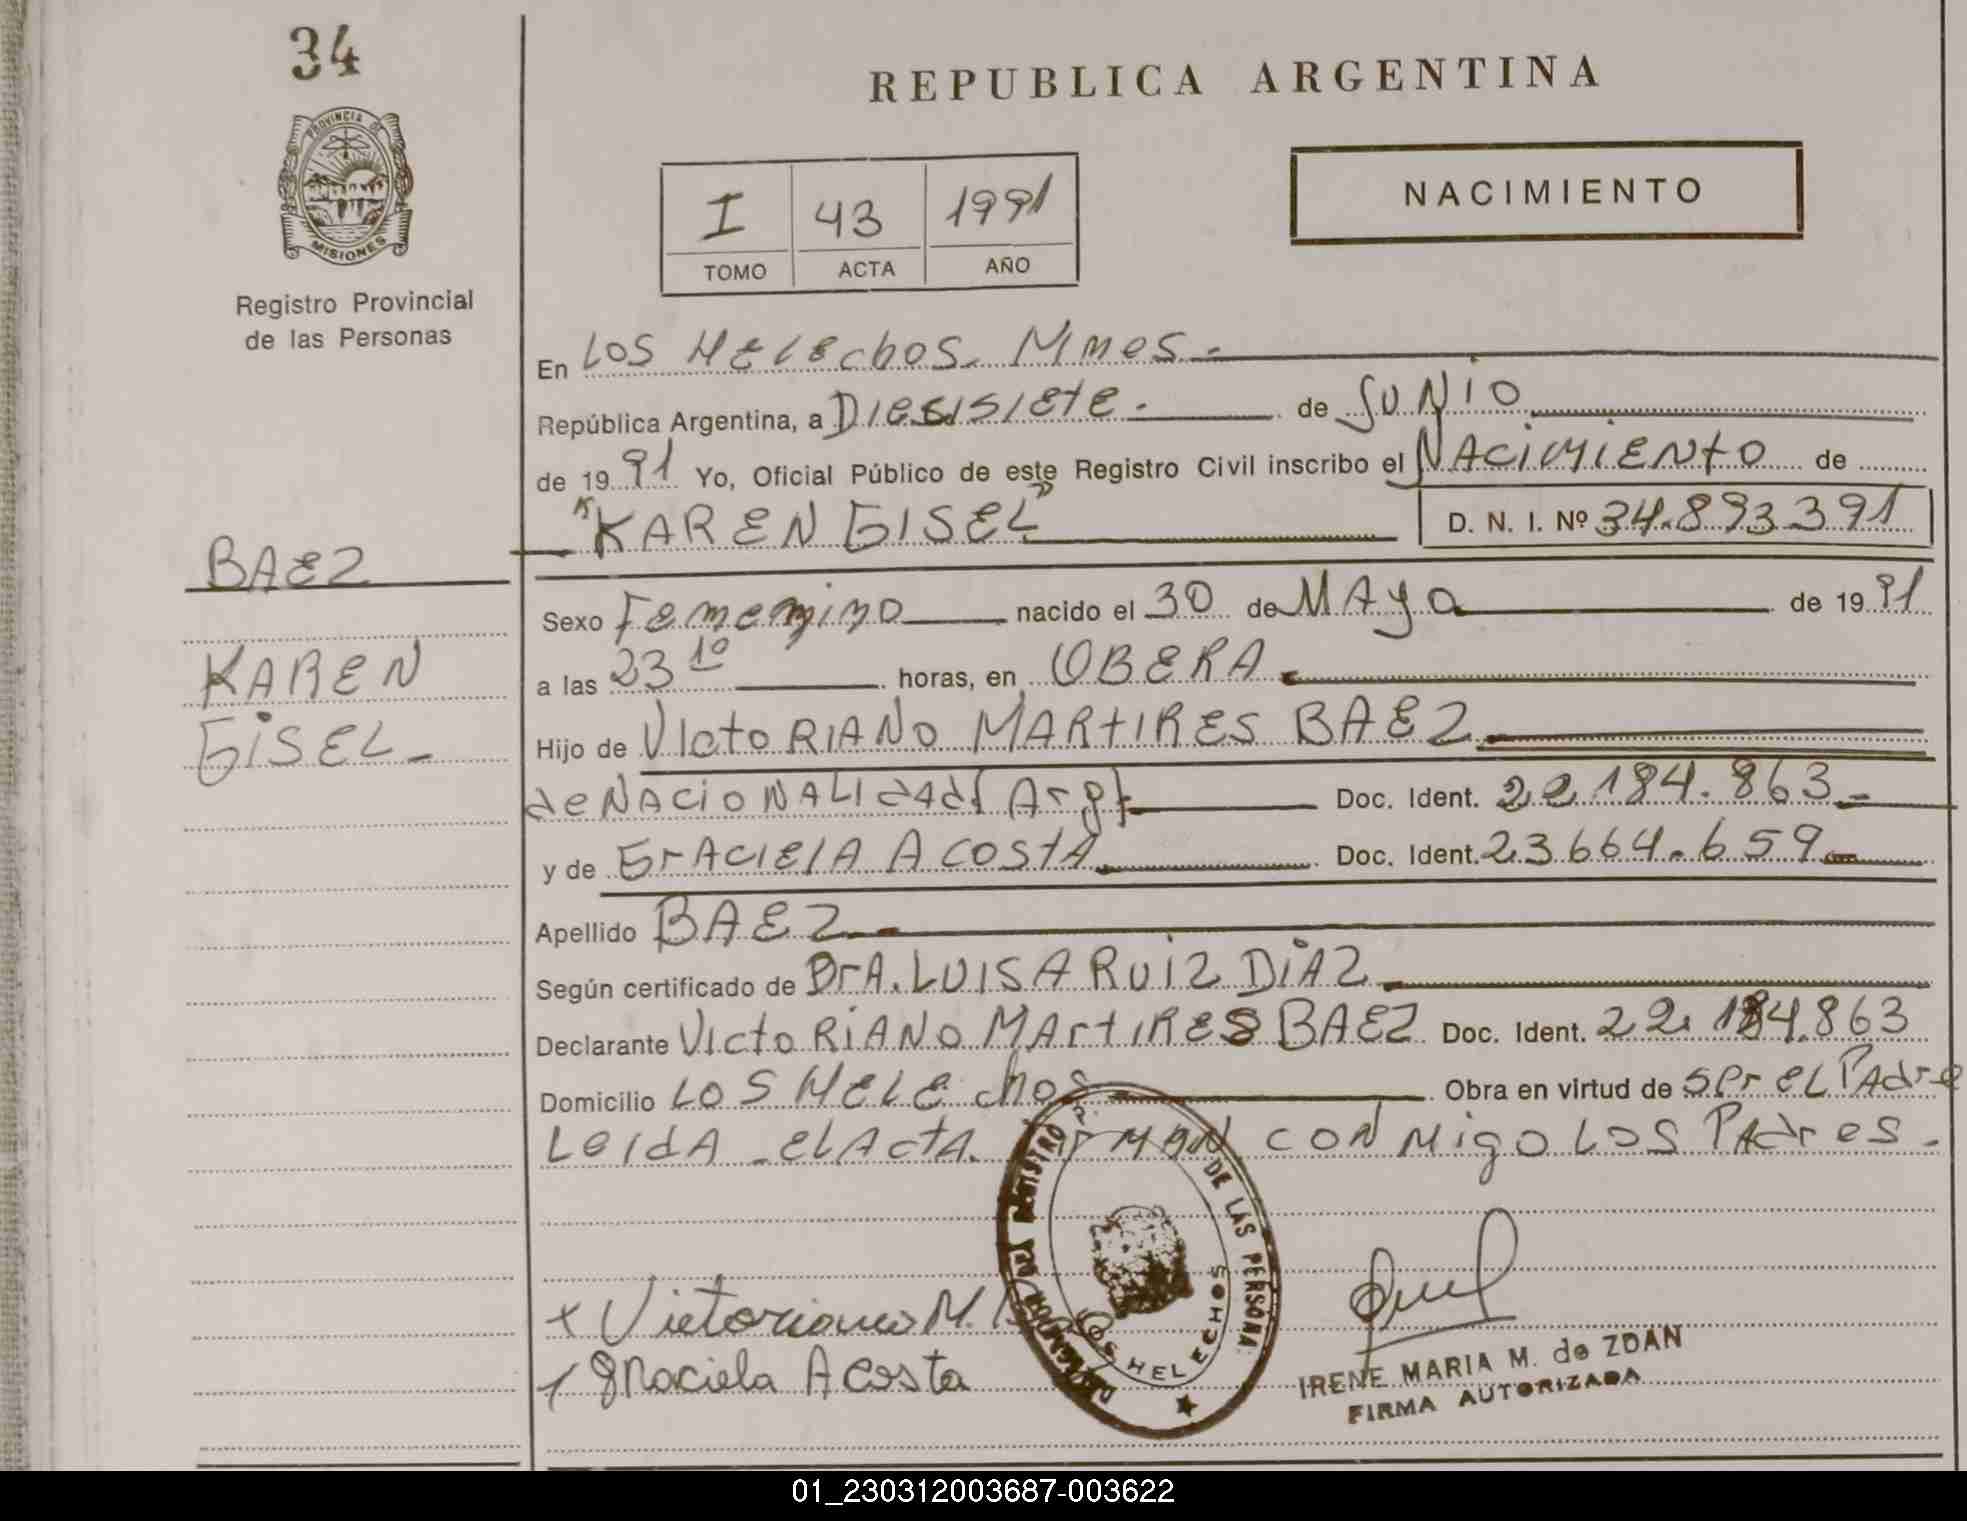 34
REPUBLICA ARGENTINA
PROVINCIA DE
MISIONES
Registro Provincial
de las Personas
I 43 1991
TOMO ACTA AÑO
NACIMIENTO
En LOS HELEchOS. Mnes.-
República Argentina, a DIESISIEtE.- de JUNIO
de 19 91 Yo, Oficial Público de este Registro Civil inscribo el NACIMIENtO de
"KAREN GISEL" D. N. I. Nº 34.893391
BAEZ
Sexo Femenino nacido el 30 de MAyo de 19 91
KAREN
a las 23 10 horas, en OBERA
GISEL-
Hijo de VIctoRIANO MARtIRES BAEZ
de NACIONALIdad (Arg) Doc. Ident. 22.184.863-
y de GrACIElA ACOStA Doc. Ident. 23.664.659-
Apellido BAEZ
Según certificado de DrA. LUISA RUIZ DIAZ
Declarante VIctoRIANO MArtIRES BAEZ Doc. Ident. 22.184.863
Domicilio LOS HELEchos Obra en virtud de Ser eL PAdre
LeIdA el ActA. FIrMAN CONMigo LOS PAdres.
x Victoriano M.
x Graciela Acosta
REGISTRO DE LAS PERSONAS
LOS HELECHOS
IRENE MARIA M. de ZDAN
FIRMA AUTORIZADA
01_230312003687-003622